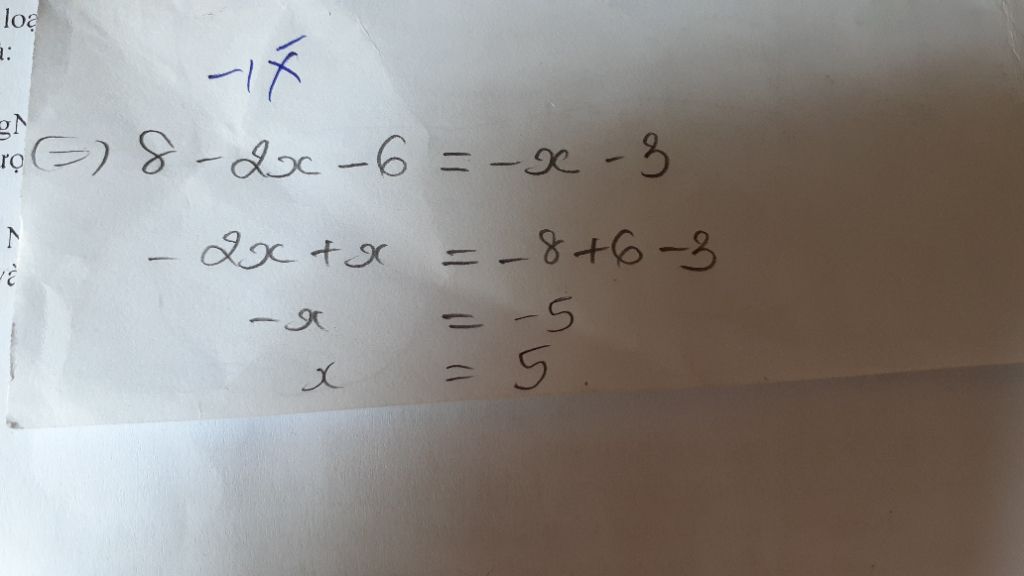 loạ
gN
rọ
N
và
-1x̄
(=) 8 - 2x - 6 = -x - 3
- 2x + x = -8 + 6 - 3
-x = -5
x = 5.